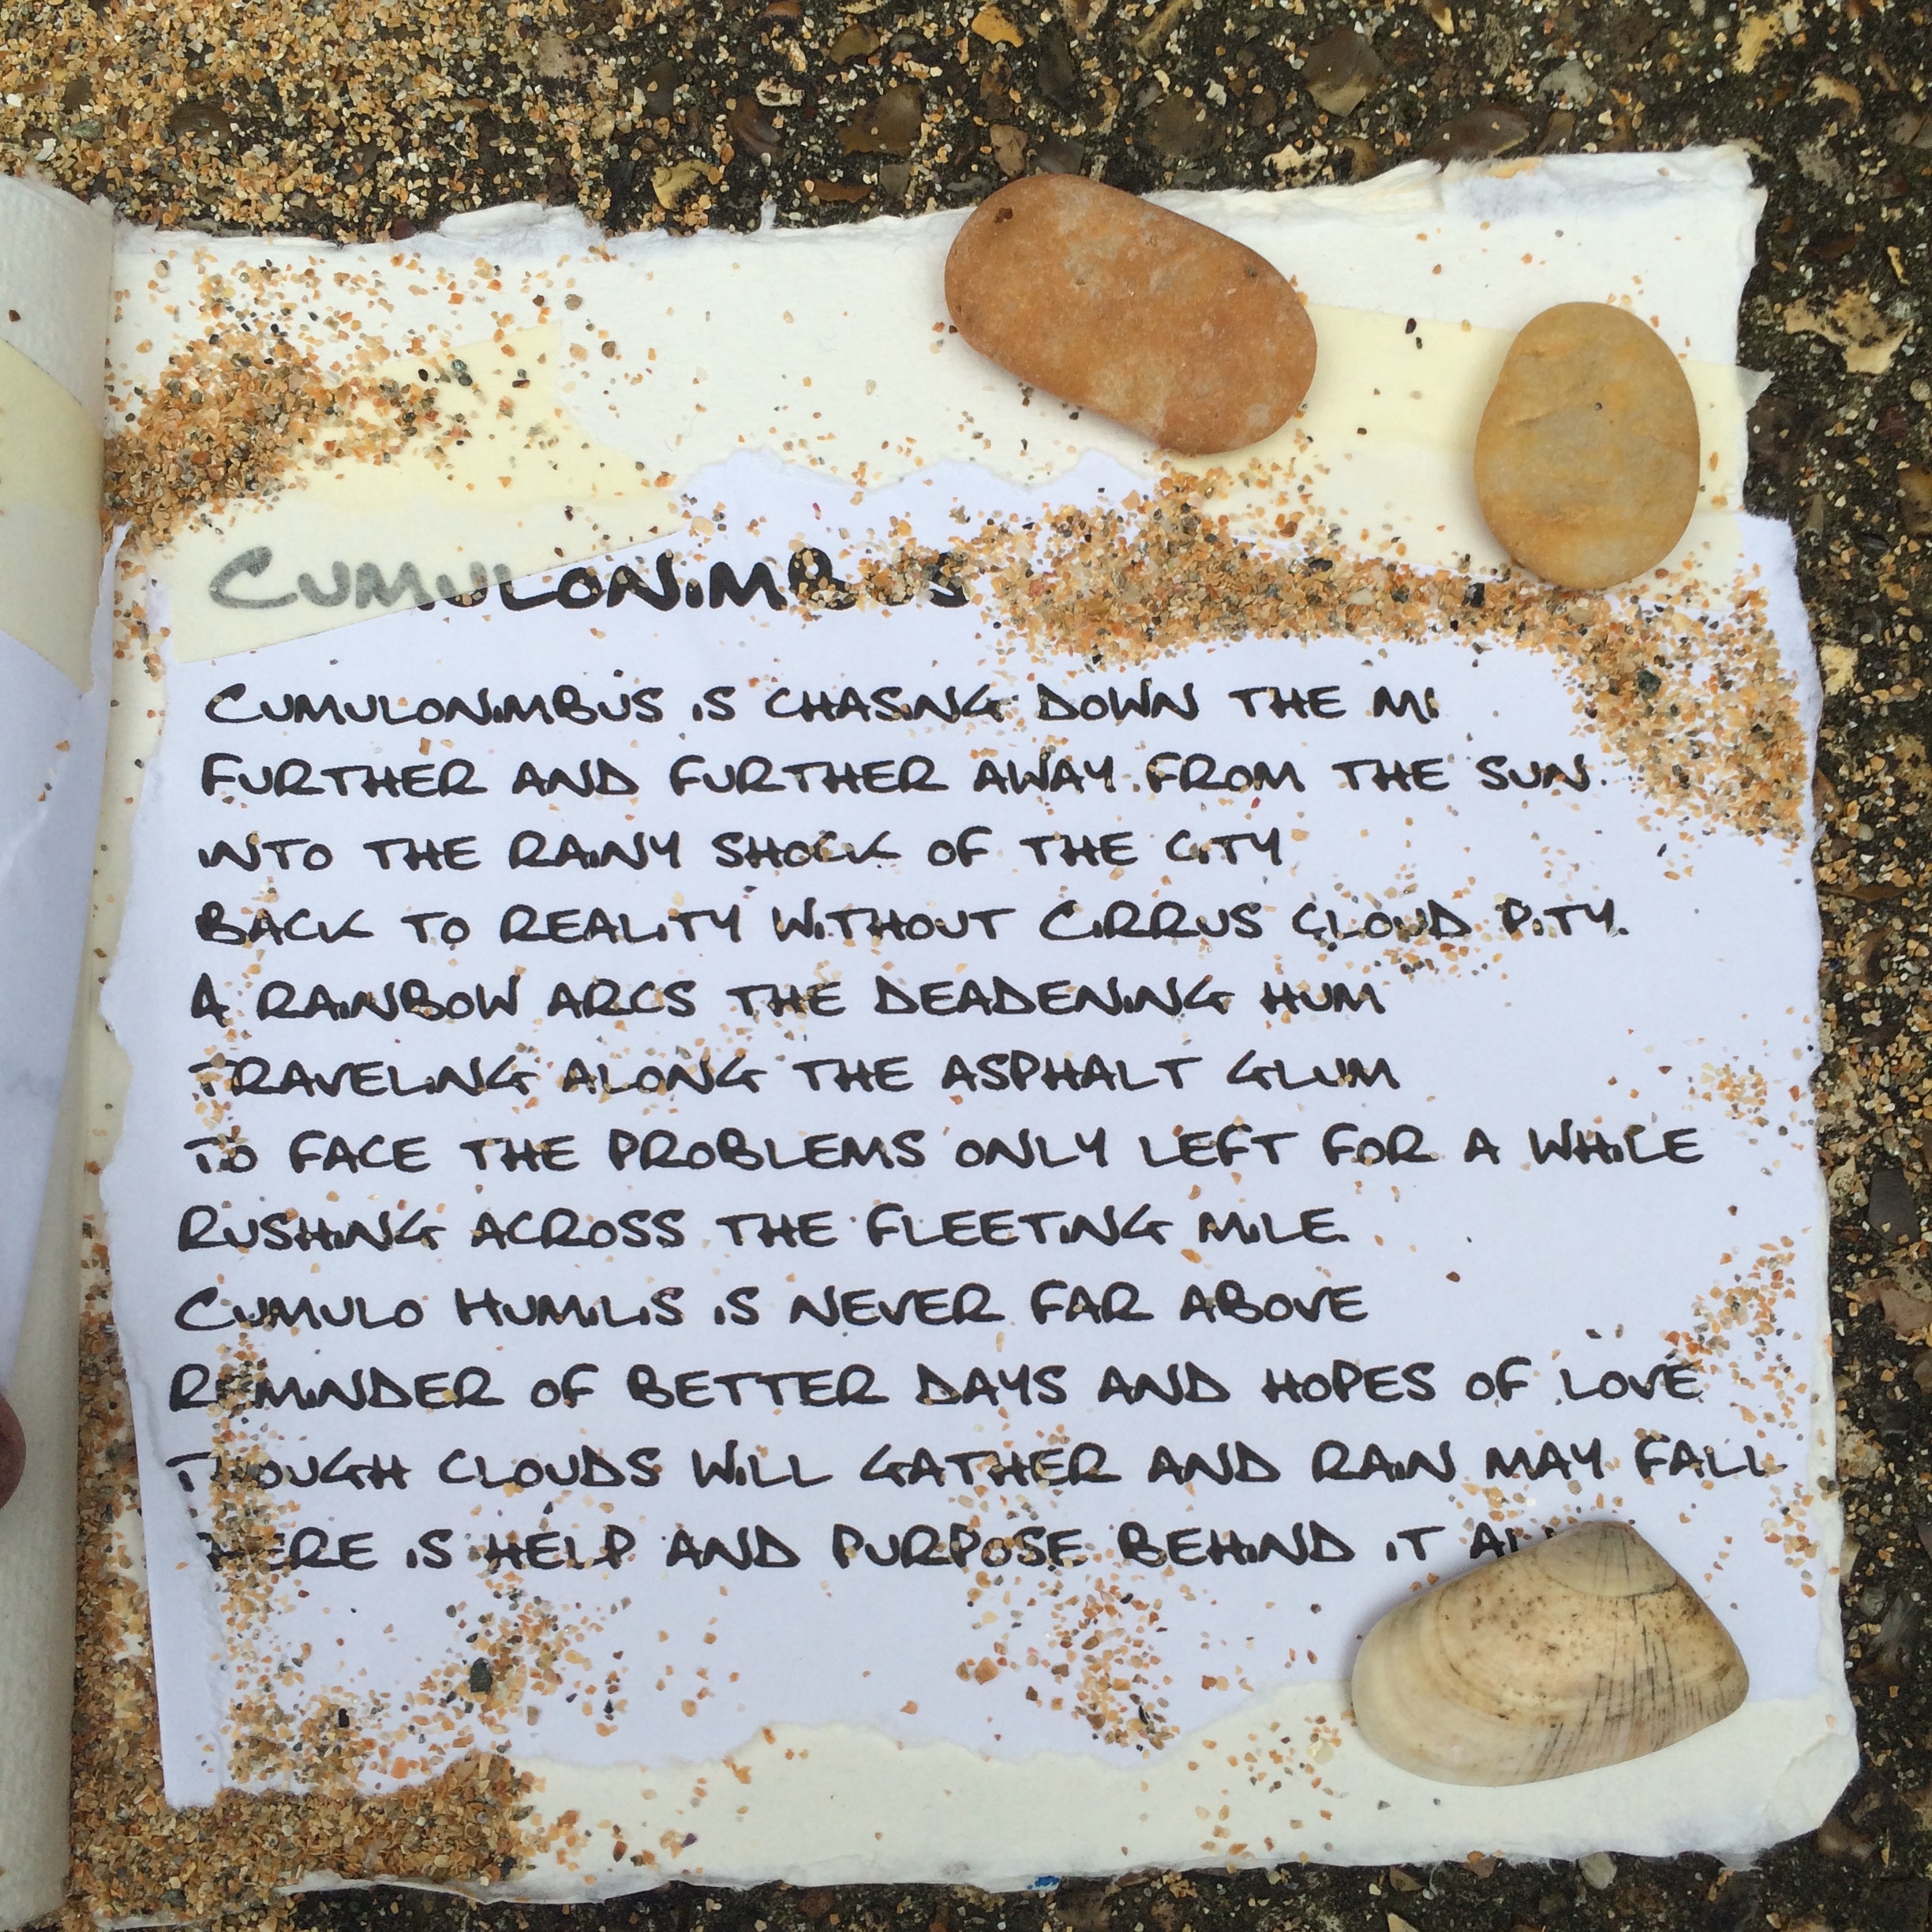 Cumulonimbus
Cumulonimbus is chasing down the M1
Further and further away from the sun.
Into the rainy shock of the city
Back to reality without cirrus cloud pity.
A rainbow arcs the deadening hum
Traveling along the asphalt glum
To face the problems only left for a while
Rushing across the fleeting mile.
Cumulo Humilis is never far above
Reminder of better days and hopes of love
Though clouds will gather and rain may fall
There is help and purpose behind it all